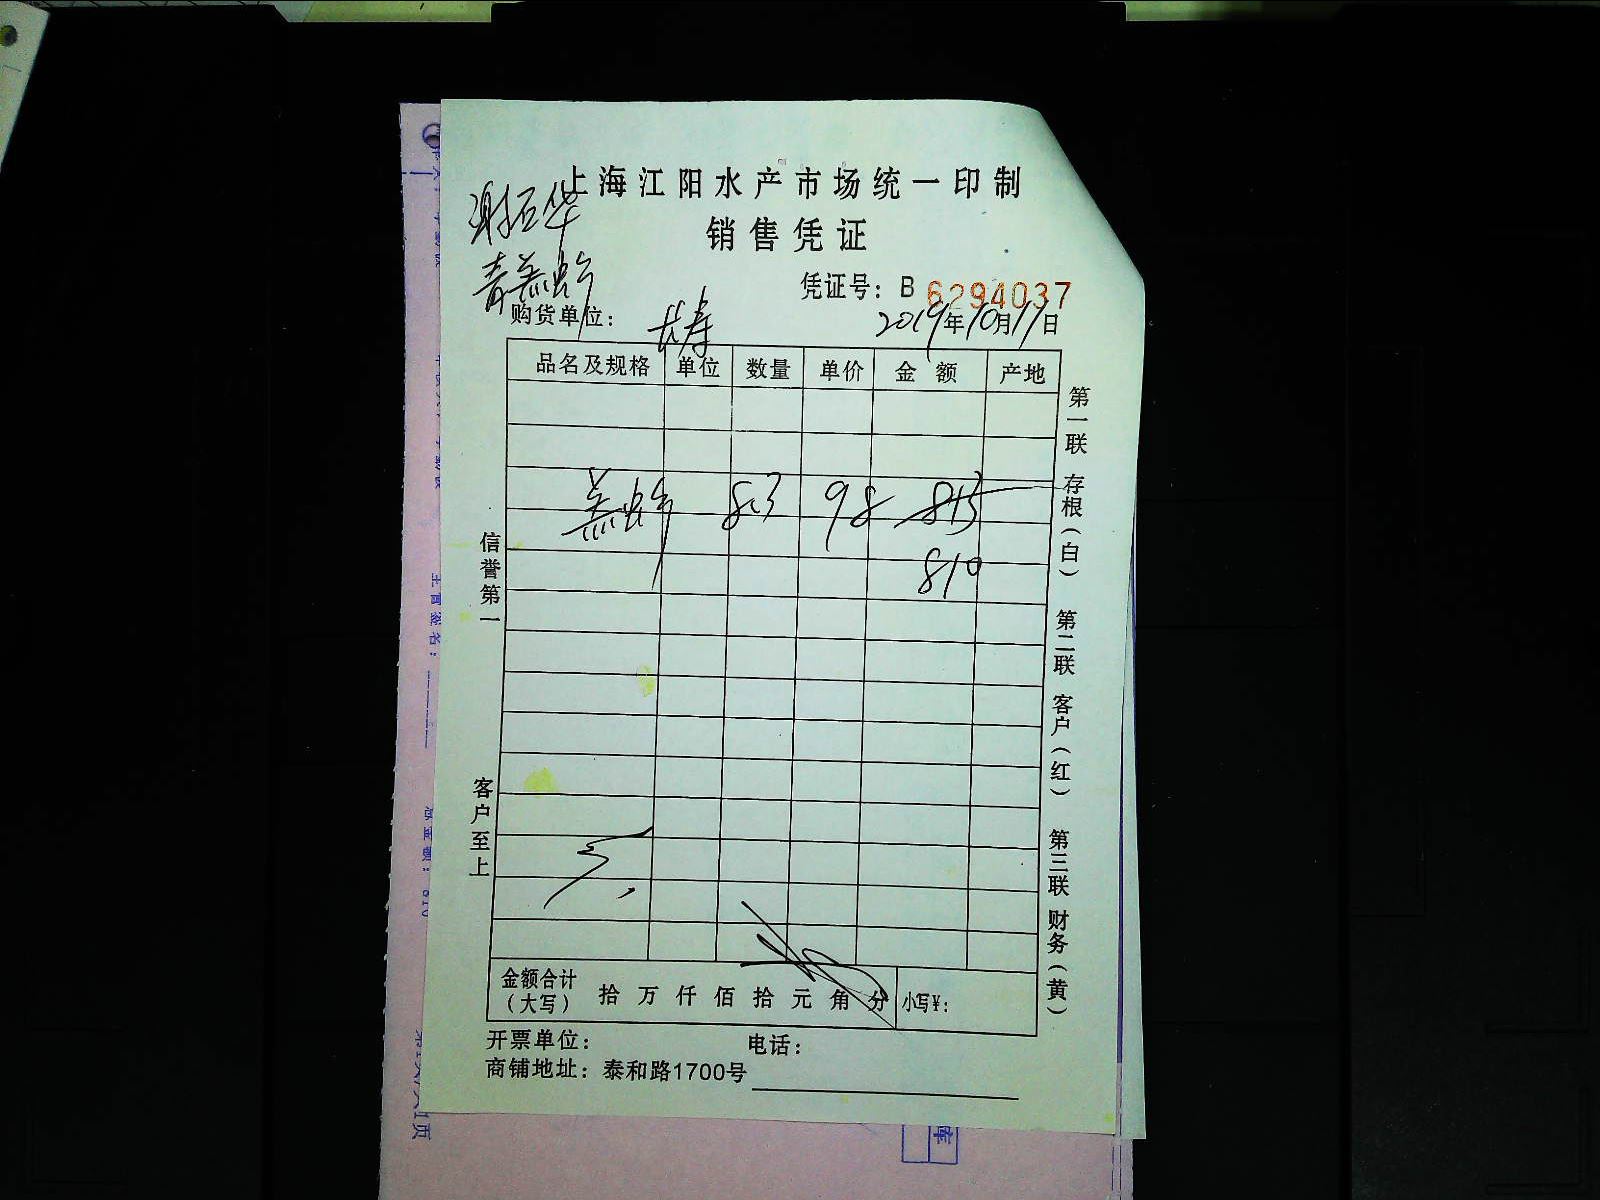 上海江阳水产市场统一印制
销售凭证
凭证号：B 6294037
购货单位：长寿
2019年10月19日
品名及规格 单位 数量 单价 金额 产地
8.3 98 813
810
金额合计（大写） 拾 万 仟 佰 拾 元 角 分 小写¥：
开票单位： 电话：
商铺地址：泰和路1700号
信誉第一
客户至上
第一联 存根（白） 第二联 客户（红） 第三联 财务（黄）
主管签名：
总金额：810